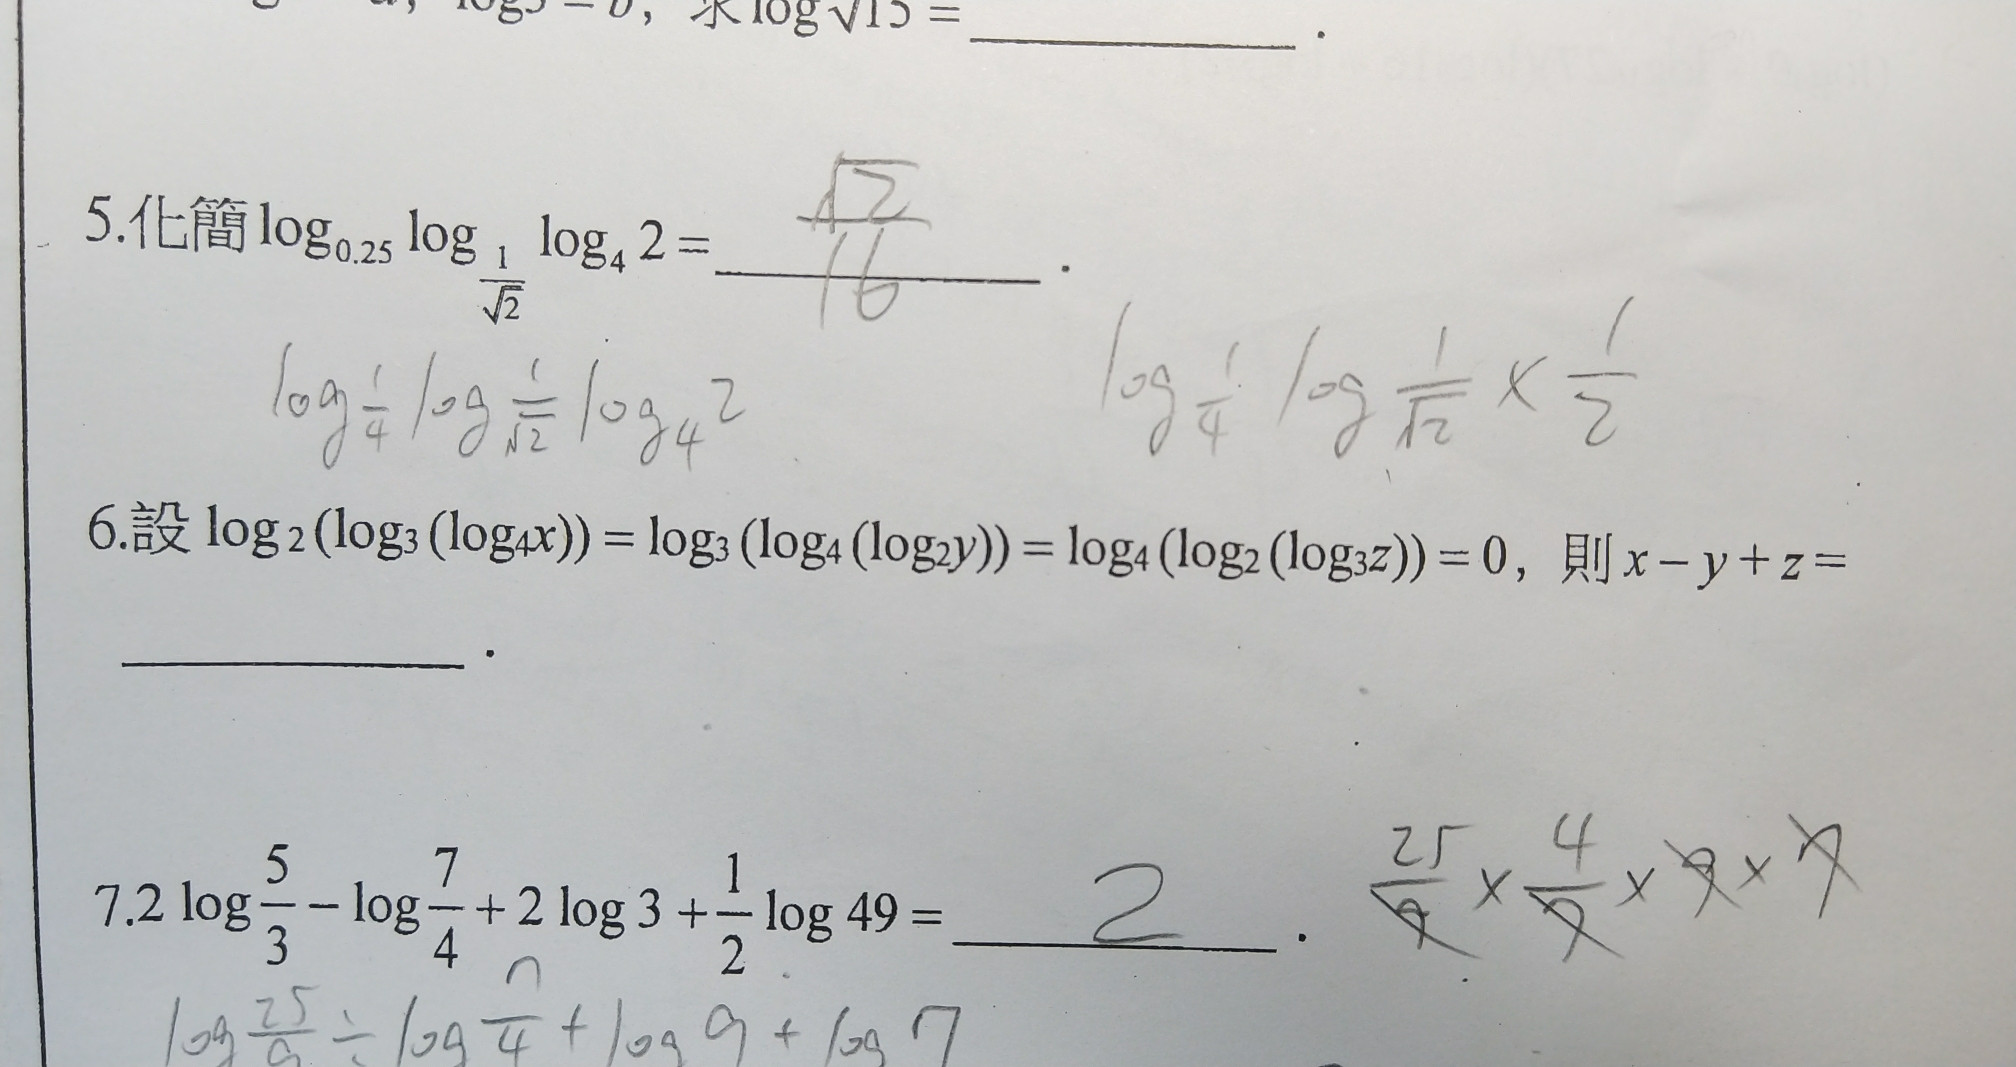 log5 = b, 求 log√15 = ________.
5.化簡 log₀.₂₅ log_{1/√2} log₄ 2 = √2/16 .
log_{1/4} log_{1/√2} log₄ 2
log_{1/4} log_{1/√2} × 1/2
6.設 log₂(log₃(log₄x)) = log₃(log₄(log₂y)) = log₄(log₂(log₃z)) = 0, 則 x − y + z =
________.
7. 2 log 5/3 − log 7/4 + 2 log 3 + 1/2 log 49 = 2 .
25/9 × 4/7 × 9 × 7
log 25/9 ÷ log 7/4 + log 9 + log 7